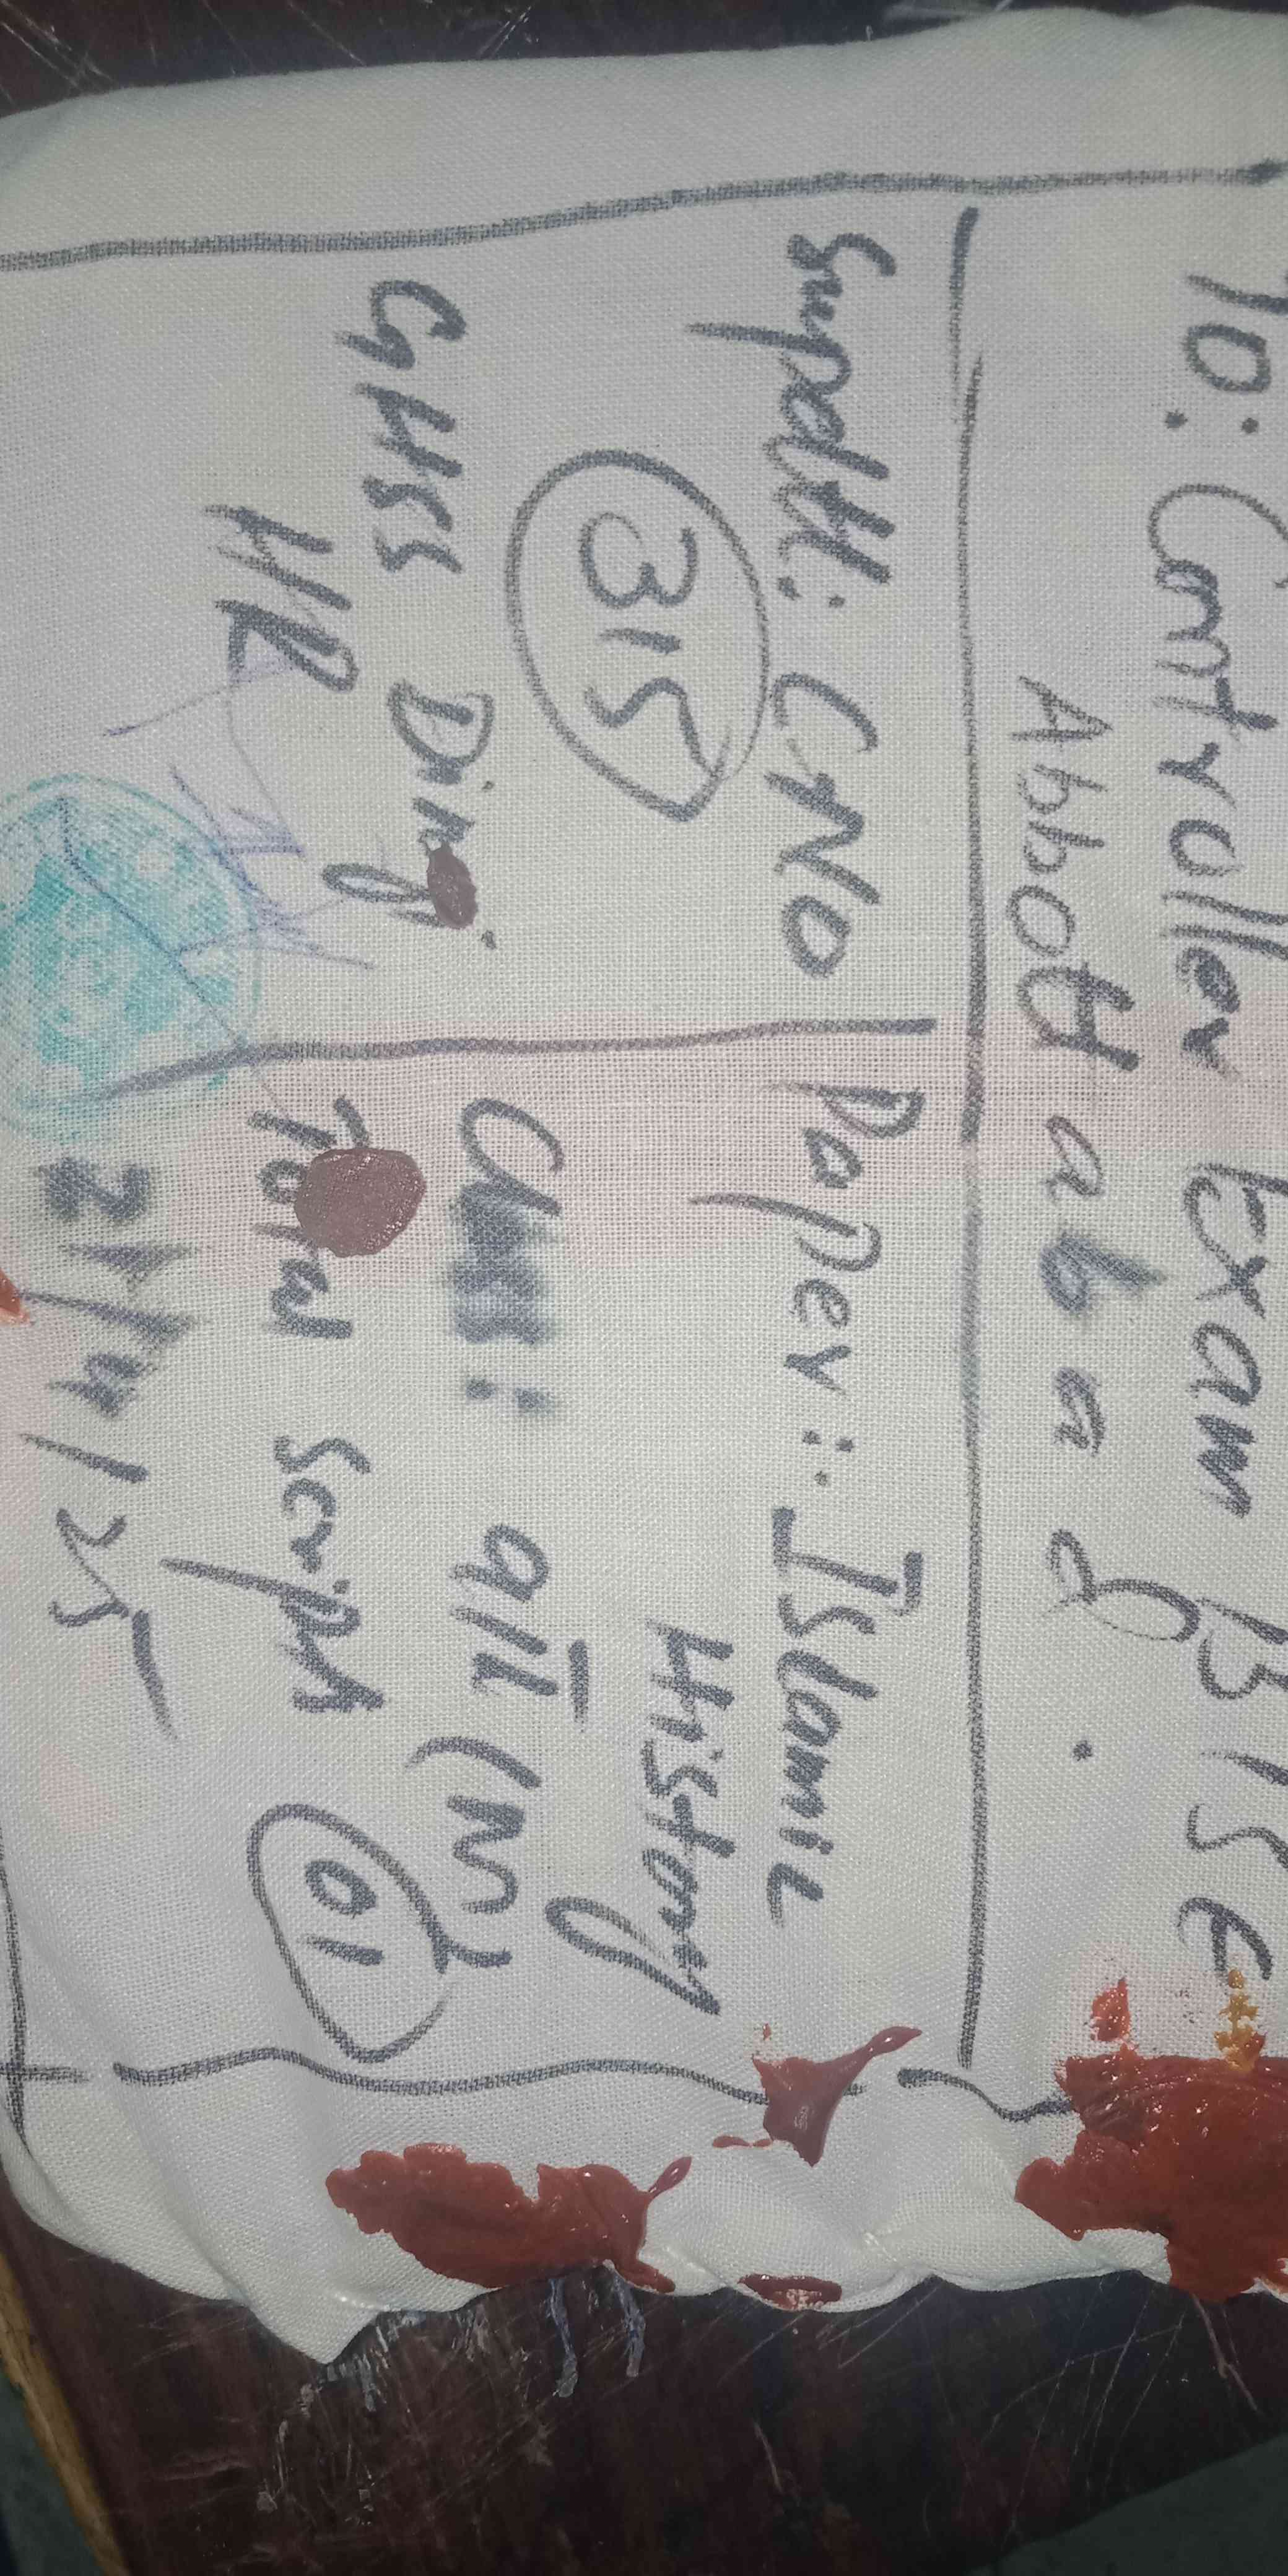 To: Controller Exam BISE
Abbottabad.
Supdtt: C No
315
GHSS Ding
HR
Paper: Islamic
History
Class: 9th (M)
Total Script 01